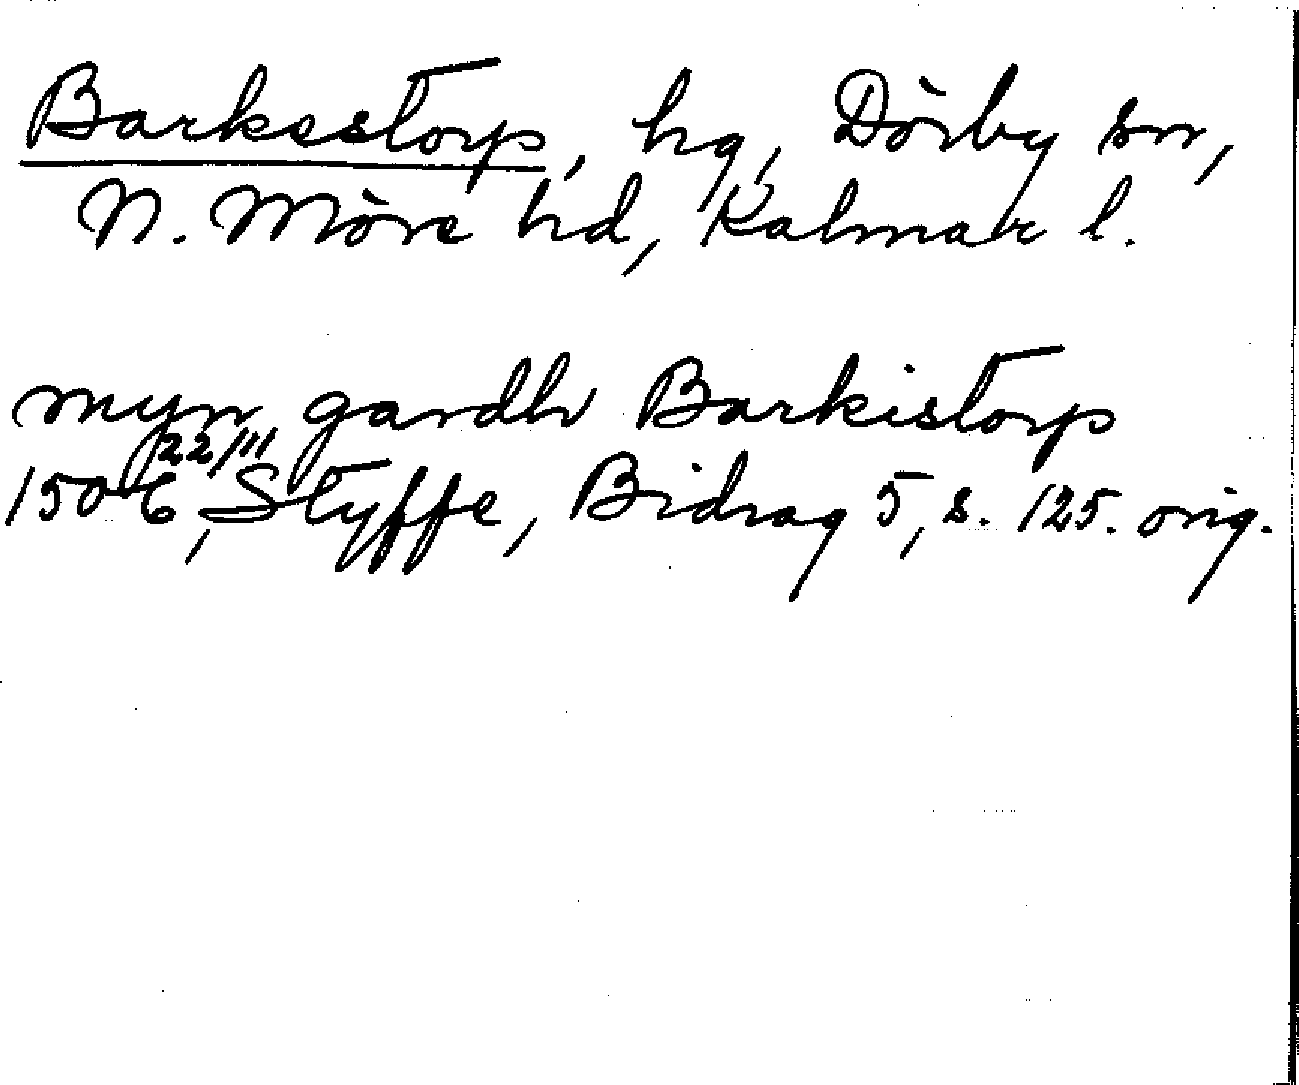 Barkestorp, hg, Dörby sn,
N. Möre hd, Kalmar l.
myn gardh Barkistorp
1506 22/111, Styffe, Bidrag 5, s. 125. orig.